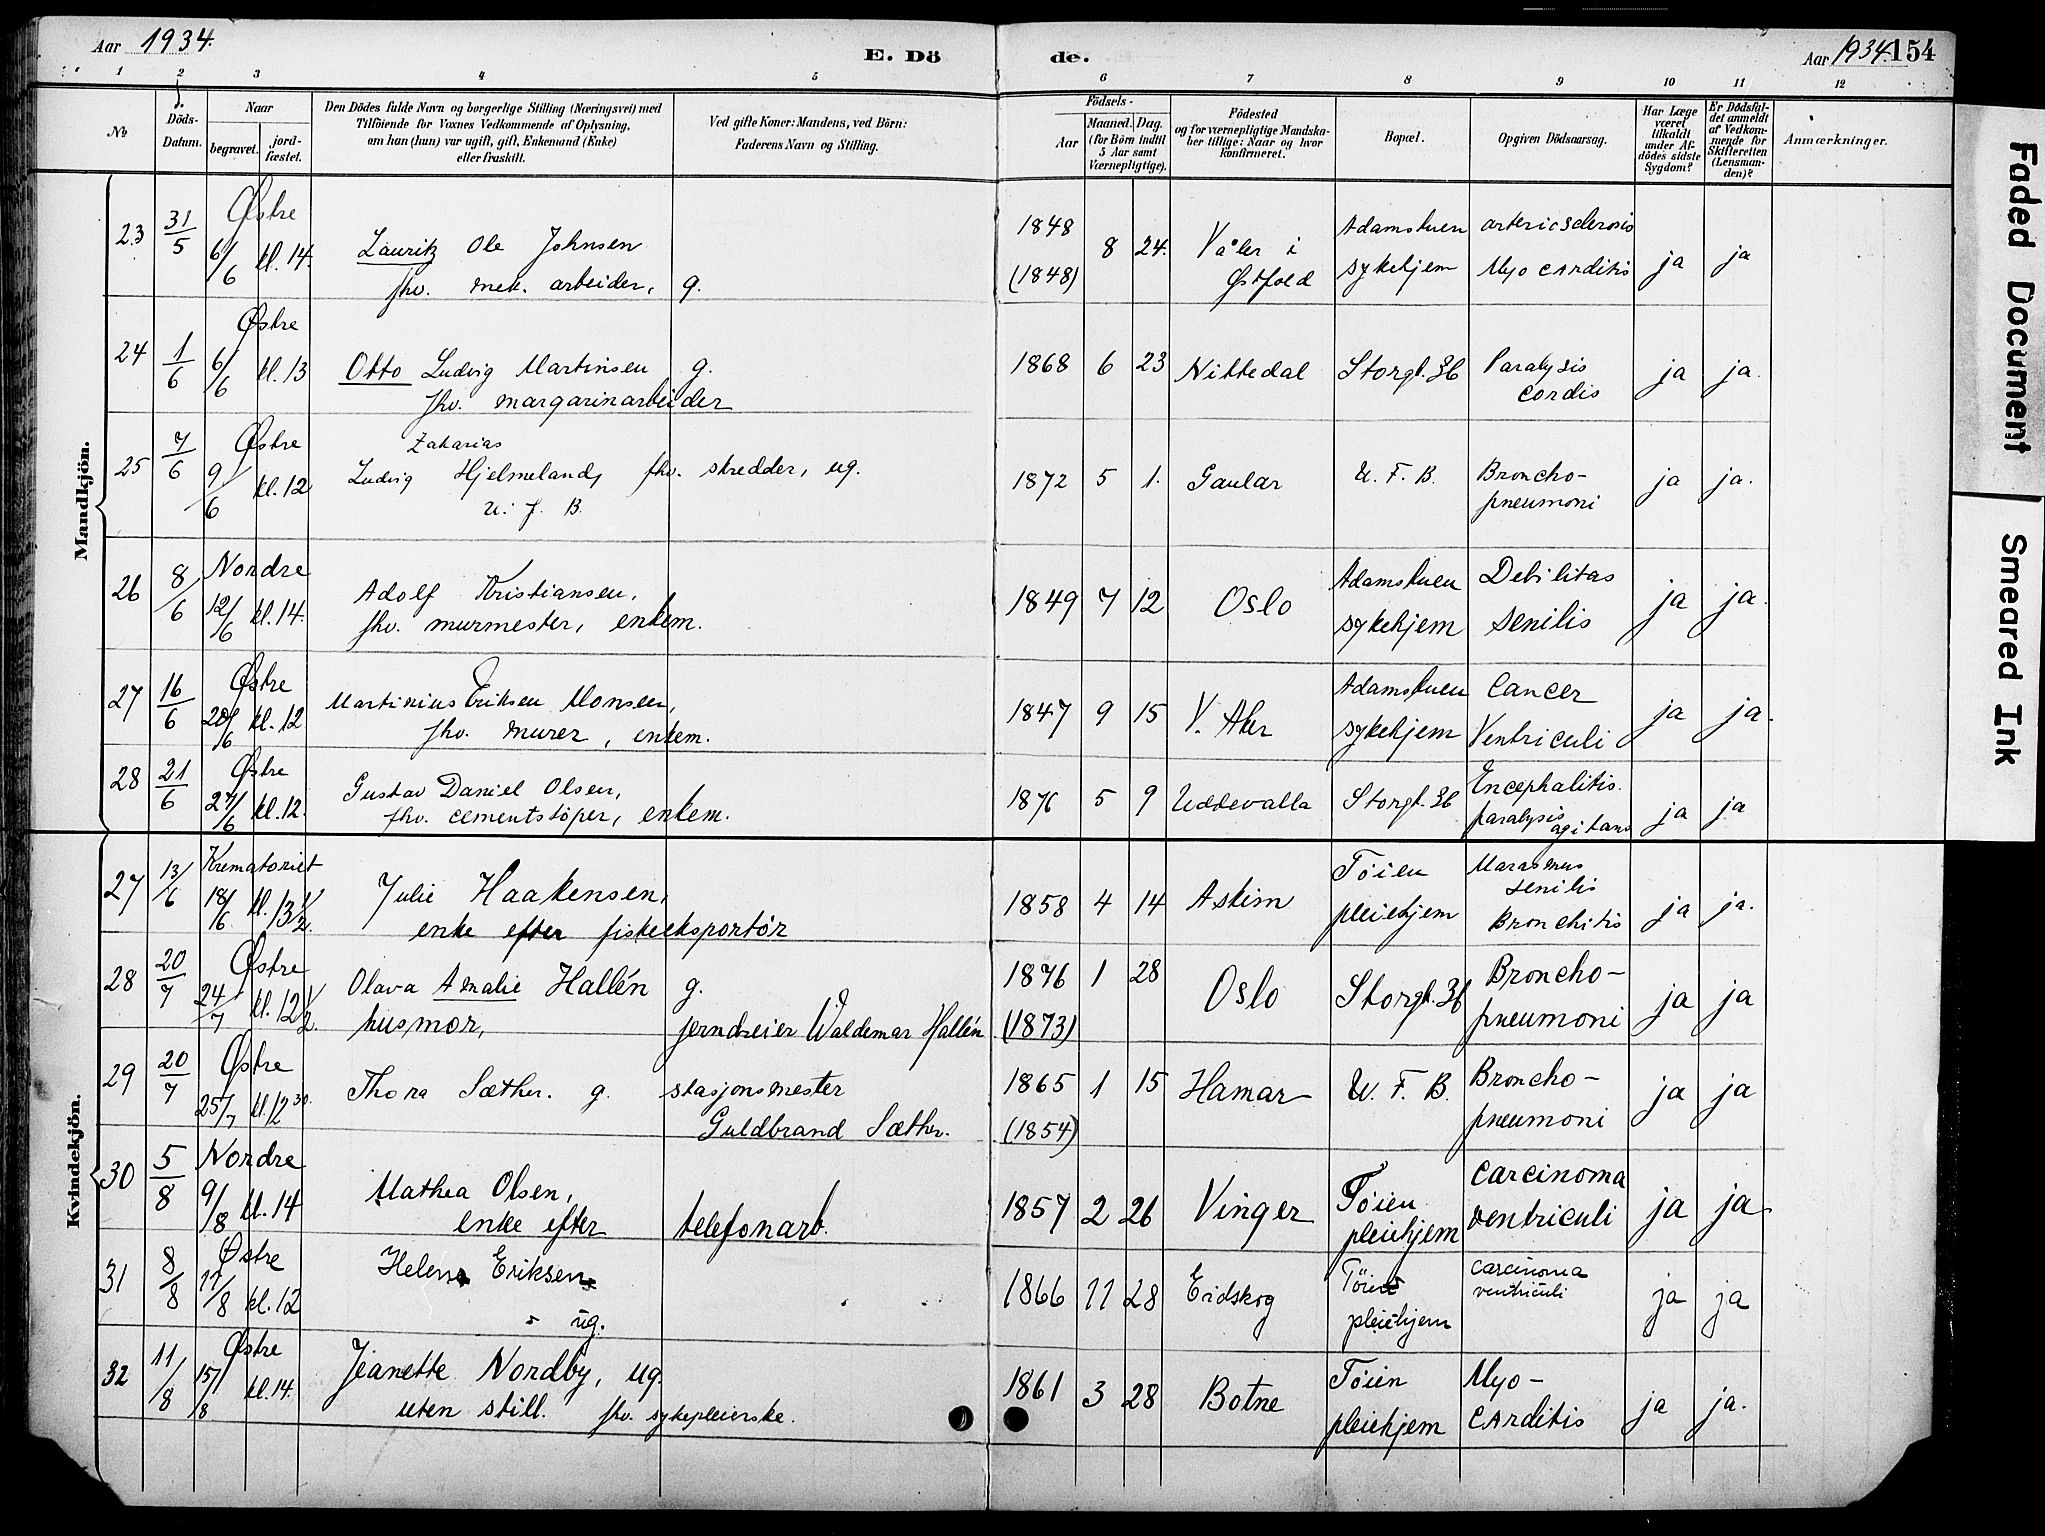 Aar 1934.
E. Dö
de.
Aar 1934. 154
1 2 3 4 5 6 7 8 9 10 11 12
No
Döds-
Datum.
Naar
begravet.
jord-
fæstet.
Den Dödes fulde Navn og borgerlige Stilling (Næringsvei) med
Tilföiende for Voxnes Vedkommende af Oplysning,
om han (hun) var ugift, gift, Enkemand (Enke)
eller fraskilt.
Ved gifte Koner: Mandens, ved Börn:
Faderens Navn og Stilling.
Födsels-
Aar
Maaned. Dag.
(for Börn indtil
5 Aar samt
Værnepligtige).
Födested
og for værnepligtige Mandska-
ber tillige: Naar og hvor
konfirmeret.
Bopæl.
Opgiven Dödsaarsag.
Har Læge
været
tilkaldt
under Af-
dödes sidste
Sygdom?
Er Dödsfal-
det anmeldt
af Vedkom-
mende for
Skifteretten
(Lensman-
den)?
Anmærkninger.
Mandkjön.
23 31/5 Østre 6/6 kl. 14.
Lauritz Ole Johnsen
fhv. mek. arbeider, g.
1848 (1848) 8 24. Våler i Østfold
Adamstuen sykehjem
arteriosclerosis Myocarditis
ja ja
24 1/6 Østre 6/6 kl. 13
Otto Ludvig Martinsen g.
fhv. margarinarbeider
1868 6 23 Nittedal Storgt. 36
Paralysis cordis
ja ja.
25 7/6 Østre 9/6 kl. 12
Zakarias
Ludvig Hjelmeland, fhv. skredder, ug.
U. F. B.
1872 5 1. Gaular U. F. B.
Broncho-
pneumoni
ja ja.
26 8/6 Nordre 12/6 kl. 14.
Adolf Kristiansen,
fhv. murmester, enkem.
1849 7 12 Oslo
Adamstuen sykehjem
Debilitas senilis
ja ja.
27 16/6 Østre 20/6 kl. 12
Martinius Eriksen Monsen,
fhv. murer, enkem.
1847 9 15 V. Aker
Adamstuen sykehjem
Cancer Ventriculi
ja ja.
28 21/6 Østre 27/6 kl. 12.
Gustav Daniel Olsen,
fhv. cementstöper, enkem.
1876 5 9 Uddevalla Storgt. 36
Encephalitis.
paralysis agitans
ja ja
Kvindekjön.
27 13/6 Krematoriet 18/6 kl. 13 1/2
Julie Haakensen,
enke efter fiskeeksportör
1858 4 14 Askim
Töien pleiehjem
Marasmus senilis
Bronchitis
ja ja.
28 20/7 Østre 24/7 kl. 12 1/2
Olava Amalie Hallén g.
husmor, jerndreier Waldemar Hallén
1876 (1873) 1 28 Oslo Storgt. 36
Broncho-
pneumoni
ja ja
29 20/7 Østre 25/7 kl. 12 30.
Thora Sæther. g. stasjonsmester
Guldbrand Sæther.
1865 (1854) 1 15 Hamar U. F. B.
Broncho-
pneumoni
ja ja
30 5/8 Nordre 9/8 kl. 14
Mathea Olsen,
enke efter telefonarb.
1857 2 26 Vinger
Töien pleiehjem
Carcinoma ventriculi
ja ja
31 8/8 Østre 11/8 kl. 12
Helene Eriksen
ug.
1866 11 28 Eidskog
Töien pleiehjem
Carcinoma ventriculi
ja ja
32 11/8 Østre 15/8 kl. 14.
Jeanette Nordby, ug.
uten still. fhv. sykepleierske.
1861 3 28 Botne
Töien pleiehjem
Myo-
carditis
ja ja.
Faded Document
Smeared Ink